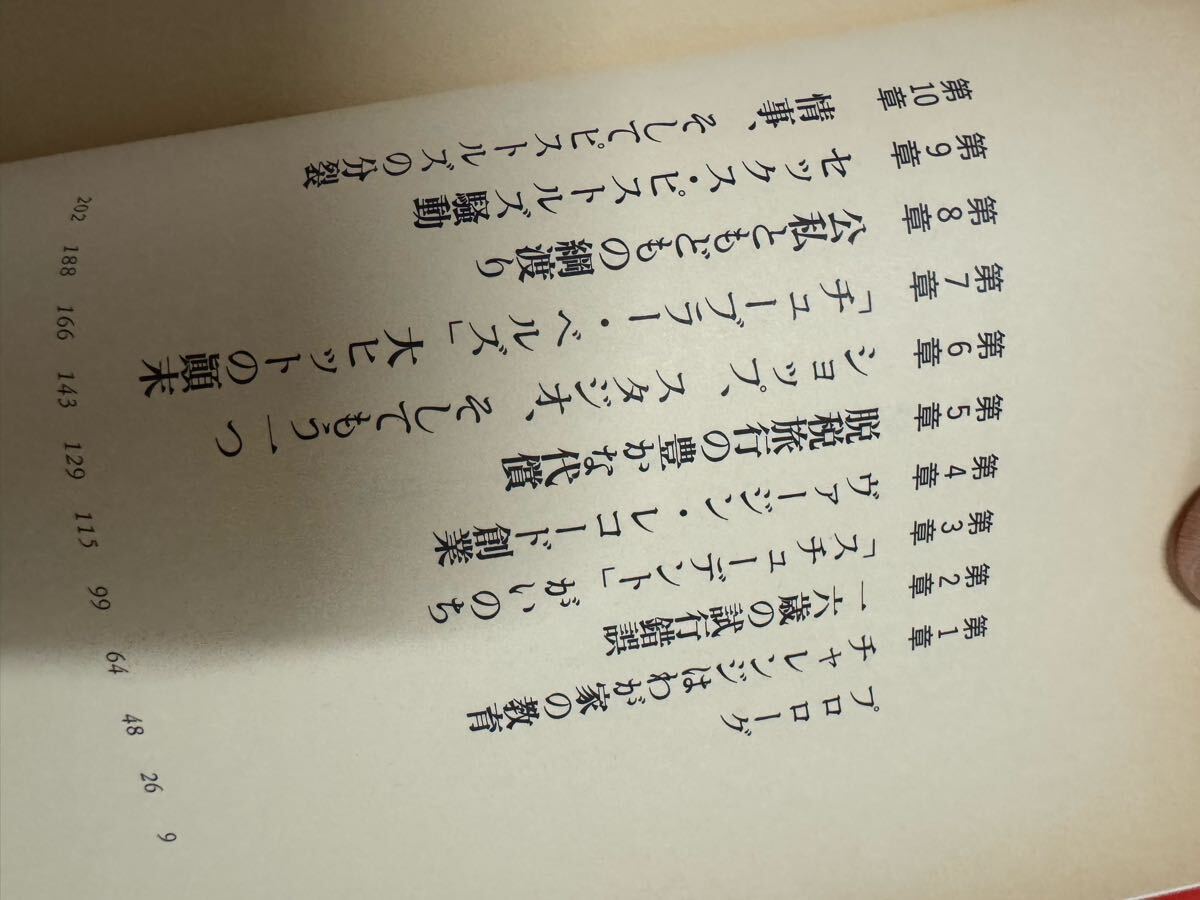 プロローグ 9
第1章 チャレンジはわが家の教育 26
第2章 一六歳の試行錯誤 48
第3章 「スチューデント」がいのち 64
第4章 ヴァージン・レコード創業 99
第5章 脱税旅行の豊かな代償 115
第6章 ショップ、スタジオ、そしてもう一つ 129
第7章 「チューブラー・ベルズ」大ヒットの顚末 143
第8章 公私ともどもの綱渡り 166
第9章 セックス・ピストルズ騒動 188
第10章 情事、そしてピストルズの分裂 202